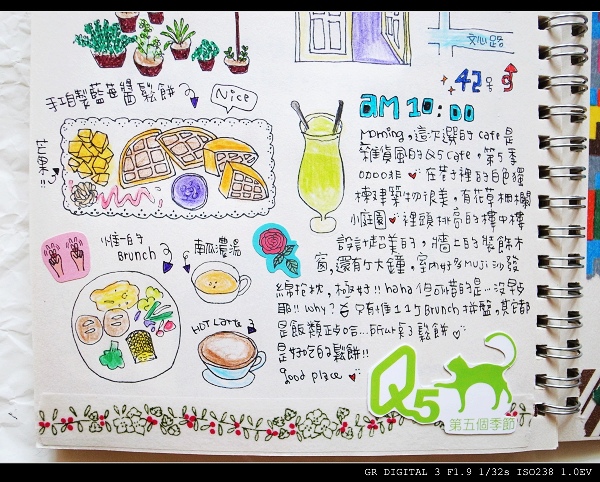 文心路
42号
手工自製藍莓醬鬆餅
Nice
芒果!!
am 10:00
morning,這次選的 cafe 是
雜貨風的 Q5 cafe,第5季
咖啡,在巷子裡的白色獨
棟建築物很美,有花草柵欄
小庭園♥裡頭挑高的樓中樓
設計超美的,牆上的裝飾木
窗,還有个大鐘,室內好多MUJI沙發
綿抱枕,極好!! haha 但可惜的是…沒早
耶!! why? 只有推11个Brunch拼盤,其它都
是飯類正吃…所以點了鬆餅♡
是好吃的鬆餅!!
good place ♥
惟一的
Brunch
南瓜濃湯
HOT Latte
Q5
第五個季節
GR DIGITAL 3 F1.9 1/32s ISO238 1.0EV